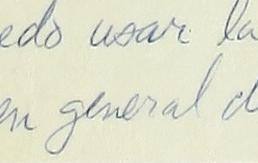 edo usar la
en general d